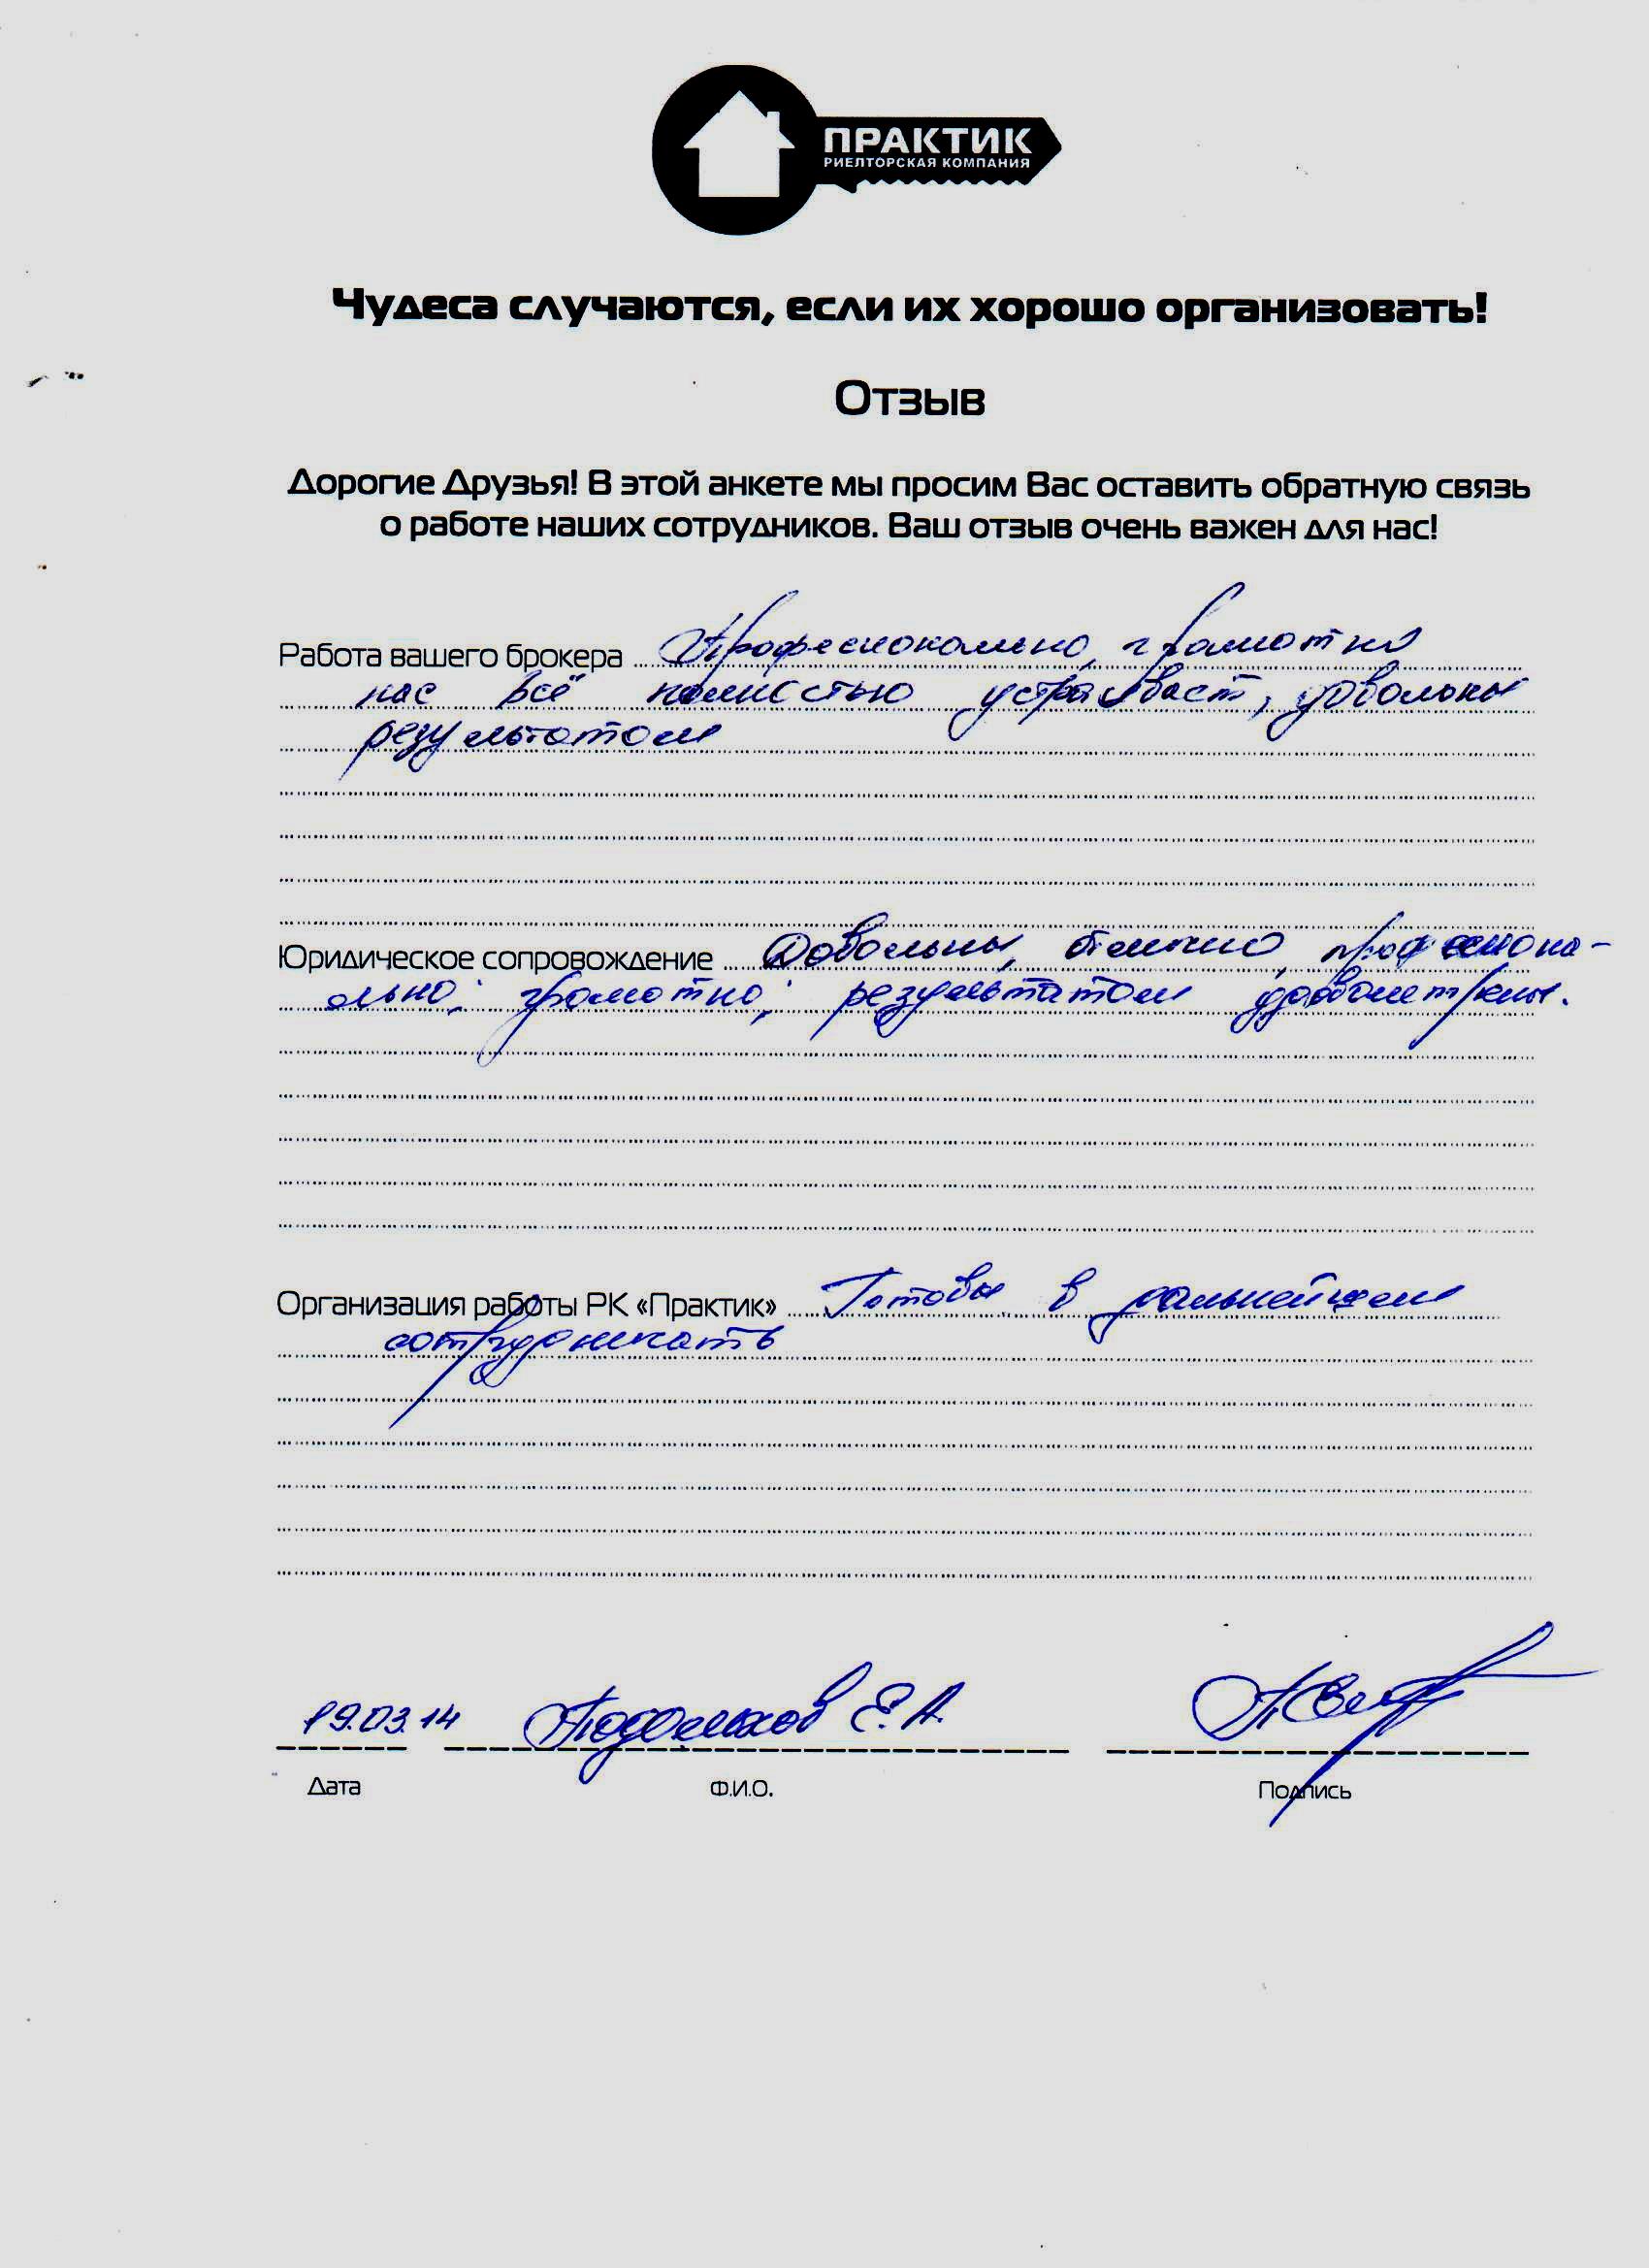 ПРАКТИК
РИЕЛТОРСКАЯ КОМПАНИЯ
Чудеса случаются, если их хорошо организовать!
Отзыв
Дорогие Друзья! В этой анкете мы просим Вас оставить обратную связь
о работе наших сотрудников. Ваш отзыв очень важен для нас!
Работа вашего брокера Професионально, грамотно
нас всё полностью устраивает, довольны
результатом
Юридическое сопровождение Довольны, отлично, професиона-
льно; грамотно; результатом
Организация работы РК «Практик» Готовы в дальнейшем
сотрудничать
19.03.14 Подольхов Е.А.
Дата Ф.И.О. Подпись